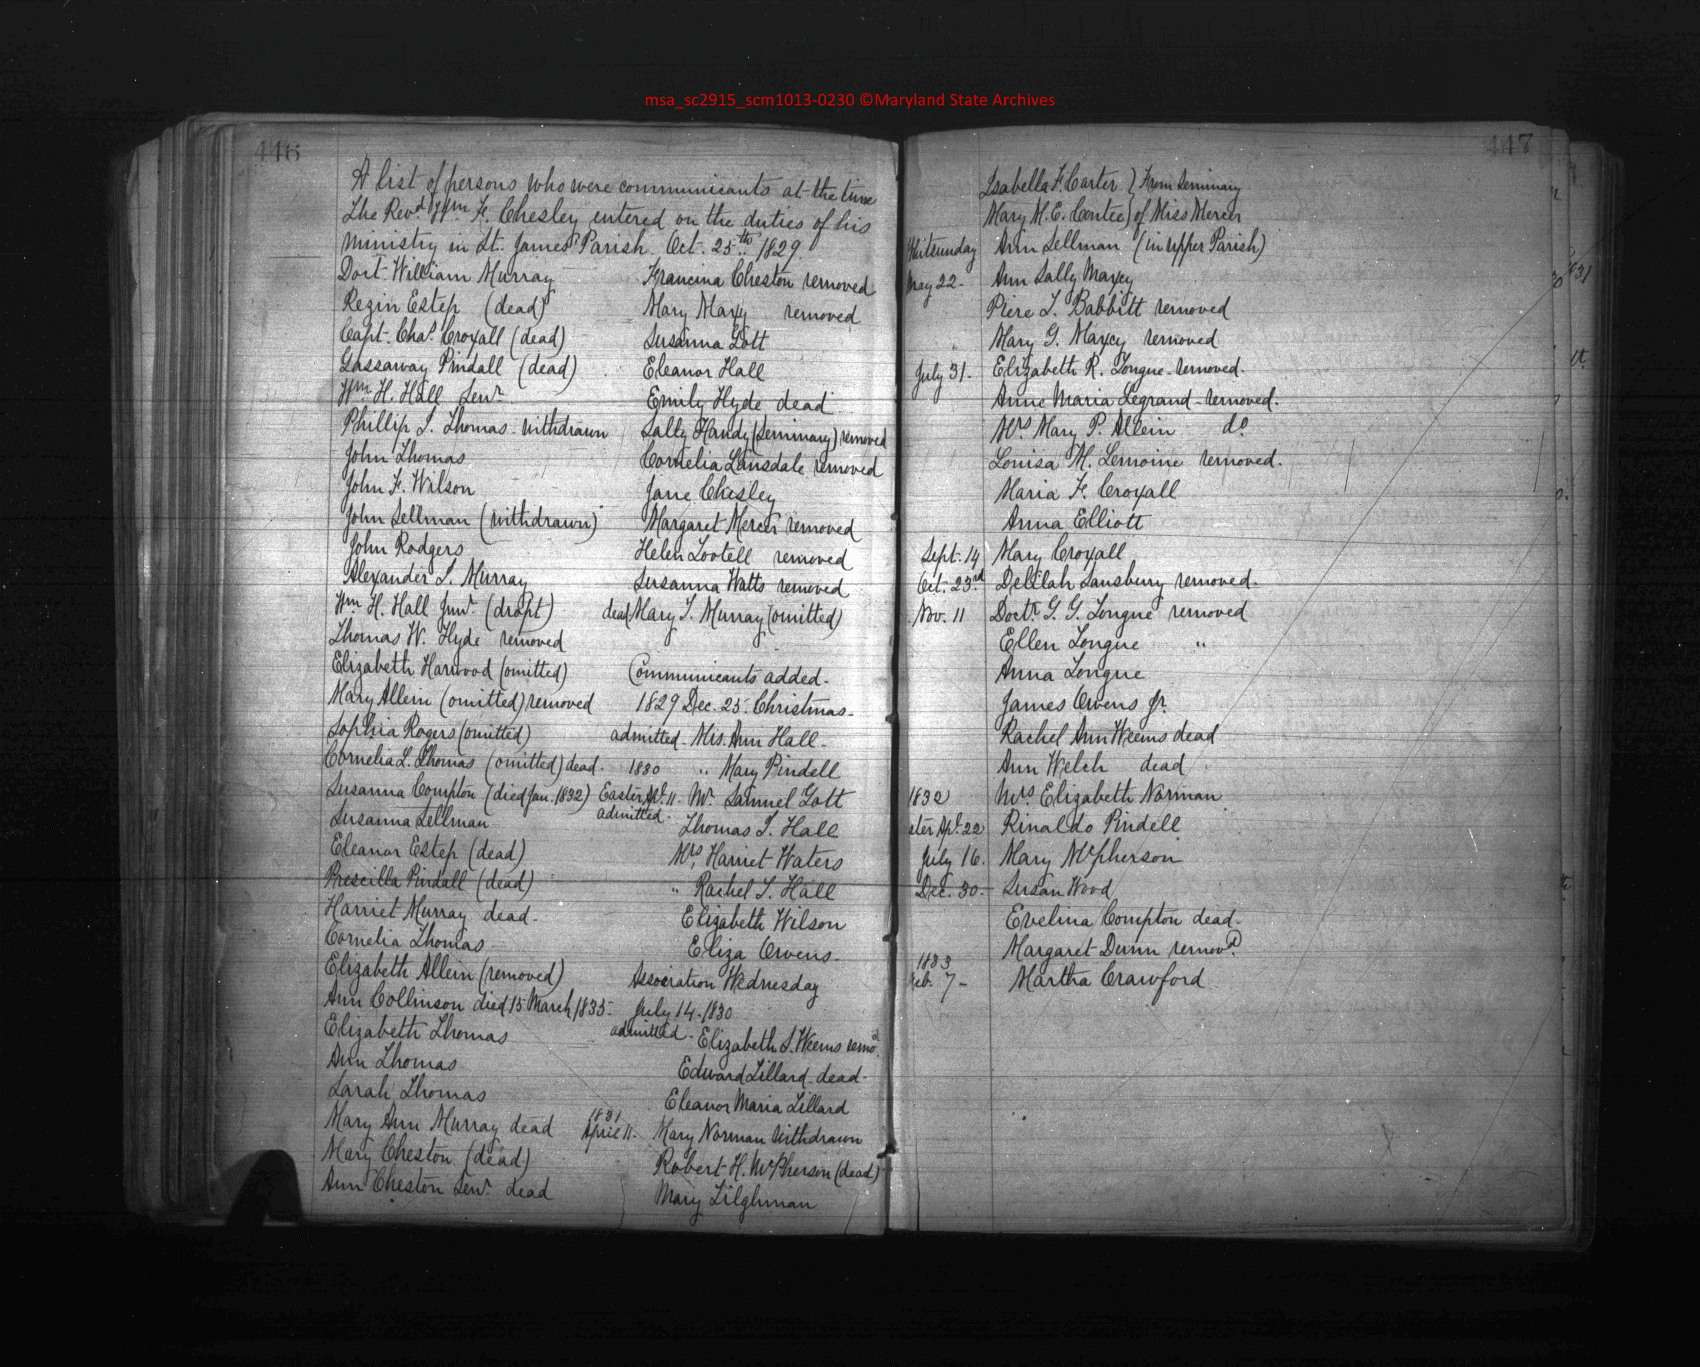 msa_sc2915_scm1013-0230 ©Maryland State Archives
446
A list of persons who were communicants at the time
The Revd Wm F. Chesley entered on the duties of his
ministry in St. James' Parish Oct. 25th 1829.
Doct William Murray
Rezin Estep (dead)
Capt. Chas. Croxall (dead)
Gassaway Pindall (dead)
Wm H. Hall Senr
Phillip J. Thomas - withdrawn
John Thomas
John F. Wilson
John Sellman (withdrawn)
John Rodgers
Alexander S. Murray
Wm H. Hall Junr. (dropt)
Thomas W. Hyde removed
Elizabeth Harwood (omitted)
Mary Allein (omitted) removed
Sophia Rogers (omitted)
Cornelia L. Thomas (omitted) dead.
Susanna Compton (died Jan. 1832)
Susanna Sellman
Eleanor Estep (dead)
Prescilla Pindall (dead)
Harriet Murray dead.
Cornelia Thomas
Elizabeth Allein (removed)
Ann Collinson died 15 March 1835.
Elizabeth Thomas
Ann Thomas
Sarah Thomas
Mary Ann Murray dead
Mary Cheston (dead)
Ann Cheston Senr. dead
Francina Cheston removed
Mary Maxy removed
Susanna Gott
Eleanor Hall
Emily Hyde dead
Sally Handy (Seminary) removed
Cornelia Lansdale removed
Jane Chesley
Margaret Mercer removed
Helen Tootell removed
Susanna Watts removed
dead Mary T. Murray (omitted)
Communicants added.
1829 Dec. 25. Christmas.
admitted - Mrs. Ann Hall.
1830 " Mary Pindell
Easter Apl. 11. Mr. Samuel Gott
admitted.
Thomas T. Hall
Mrs. Harriet Waters
" Rachel S. Hall
Elizabeth Wilson
Eliza Owens.
Association Wednesday
July 14. 1830
admitted - Elizabeth S. Weems remod
Edward Tillard. dead.
Eleanor Maria Tillard
1831
April 11. Mary Norman withdrawn
Robert H. McPherson (dead)
Mary Tilghman
447
Isabella F. Carter } From Seminary
Mary M. E. Contee } of Miss Mercer
Whitsunday Ann Sellman (in upper Parish)
May 22. Ann Sally Maxcy
Piere T. Babbitt removed
Mary G. Maxcy removed
July 31. Elizabeth R. Tongue - removed.
Anne Maria Legrand - removed.
Mrs. Mary P. Allein do.
Louisa M. Lemoine removed.
Maria F. Croxall
Anna Elliott
Sept. 14 Mary Croxall
Oct. 23rd Delilah Sansbury removed.
Nov. 11 Doctr. G. G. Tongue removed
Ellen Tongue "
Anna Tongue
James Owens Jr.
Rachel Ann Weems dead
Ann Welch dead
1832 Mrs Elizabeth Norman
ster Apl. 22 Rinaldo Pindell
July 16. Mary McPherson
Dec. 30. Susan Wood
Evelina Compton dead.
Margaret Dunn removd.
1833
Feb. 7 - Martha Crawford